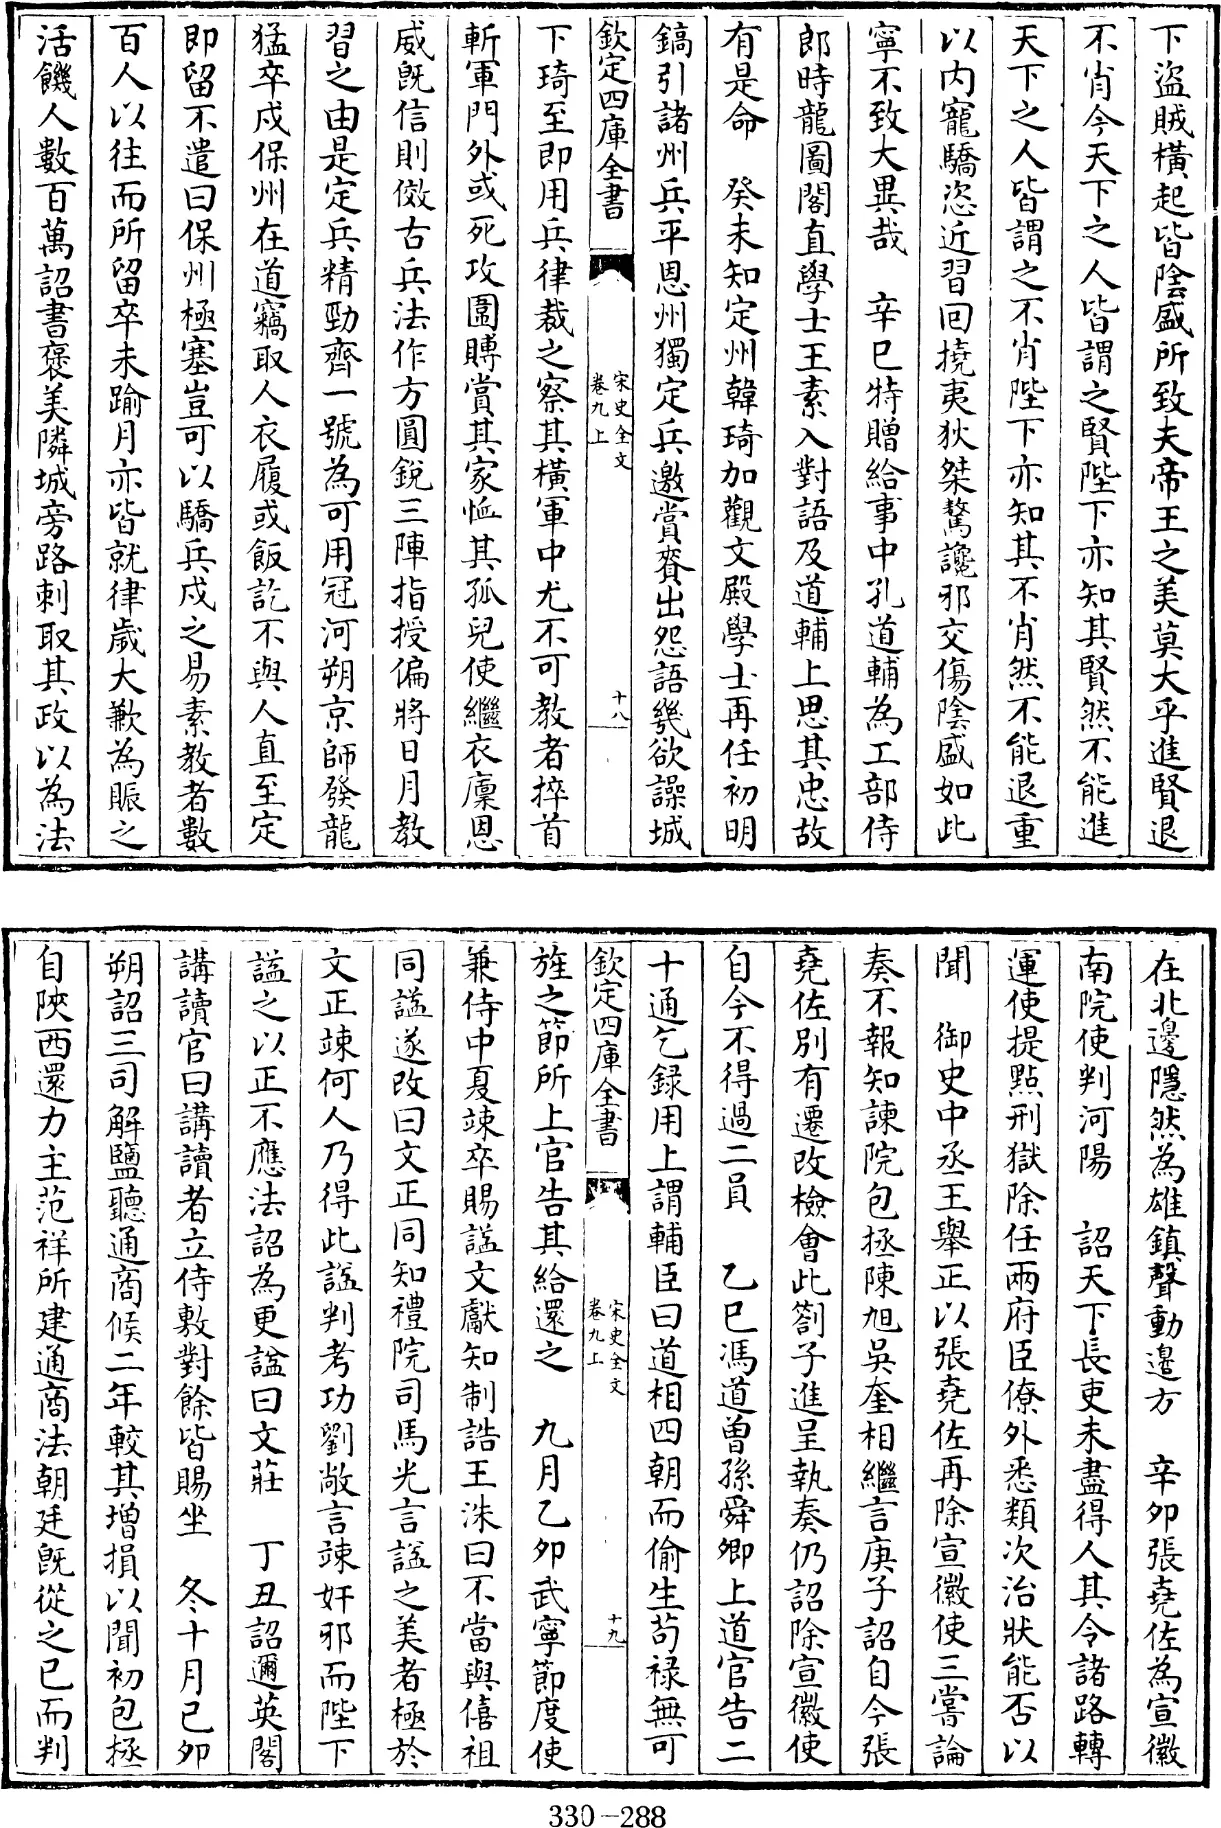 下盜賊橫起皆陰盛所致夫帝王之美莫大乎進賢退
不肖今天下之人皆謂之賢陛下亦知其賢然不能進
天下之人皆謂之不肖陛下亦知其不肖然不能退重
以内寵驕恣近習回撓夷狄桀驁讒邪交傷陰盛如此
寧不致大異哉　辛巳特贈給事中孔道輔為工部侍
郎時龍圖閣直學士王素入對語及道輔上思其忠故
有是命　癸未知定州韓琦加觀文殿學士再任初明
鎬引諸州兵平恩州獨定兵邀賞賚出怨語幾欲譟城
欽定四庫全書
宋史全文
卷九上
十八
下琦至即用兵律裁之察其橫軍中尤不可教者捽首
斬軍門外或死攻圍賻賞其家恤其孤兒使繼衣廩恩
威旣信則傚古兵法作方圓銳三陣指授偏將日月教
習之由是定兵精勁齊一號為可用冠河朔京師發龍
猛卒戍保州在道竊取人衣履或飯訖不與人直至定
即留不遣曰保州極塞豈可以驕兵戍之易素教者數
百人以往而所留卒未踰月亦皆就律歲大歉為賑之
活饑人數百萬詔書褒美隣城旁路刺取其政以為法
在北邊隱然為雄鎮聲動邊方　辛卯張堯佐為宣徽
南院使判河陽　詔天下長吏未盡得人其令諸路轉
運使提點刑獄除任兩府臣僚外悉類次治狀能否以
聞　御史中丞王舉正以張堯佐再除宣徽使三嘗論
奏不報知諫院包拯陳旭吳奎相繼言庚子詔自今張
堯佐別有遷改檢會此劄子進呈執奏仍詔除宣徽使
自今不得過二員　乙巳馮道曾孫舜卿上道官告二
十通乞録用上謂輔臣曰道相四朝而偷生苟禄無可
欽定四庫全書
宋史全文
卷九上
十九
旌之節所上官告其給還之　九月乙卯武寧節度使
兼侍中夏竦卒賜諡文獻知制誥王洙曰不當與僖祖
同諡遂改曰文正同知禮院司馬光言諡之美者極於
文正竦何人乃得此諡判考功劉敞言竦奸邪而陛下
諡之以正不應法詔為更諡曰文莊　丁丑詔邇英閣
講讀官曰講讀者立侍敷對餘皆賜坐　冬十月己卯
朔詔三司解鹽聽通商候二年較其增損以聞初包拯
自陜西還力主范祥所建通商法朝廷旣從之已而判
330-288